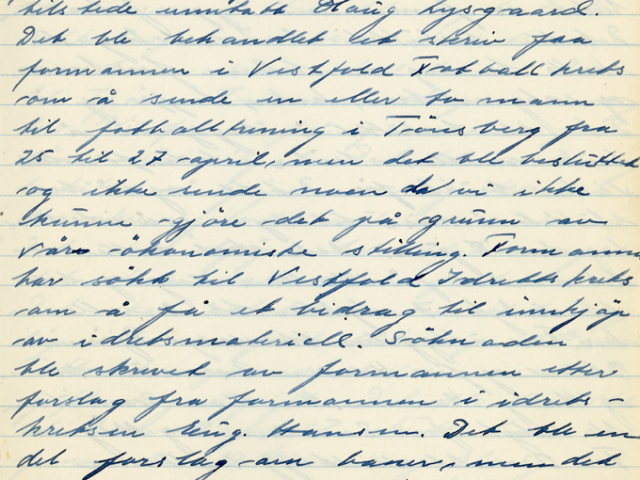 tilstede unntatt Haug Lysgaard.
Det ble behandlet et skriv fra
formannen i Vestfold Fotball krets
om å sende en eller to mann
til fotballtrening i Tönsberg fra
25 til 27 april, men det ble besluttet
og ikke sende noen da vi ikke
kunne gjöre det på grunn av
våre ökonomiske stilling. Formannen
har sökt til Vestfold Idrettskrets
om å få et bidrag til innkjöp
av idretsmateriell. Söknaden
ble skrevet av formannen etter
forslag fra formannen i idrets-
kretsen Hansen. Det ble en
del forslag om baner, men det